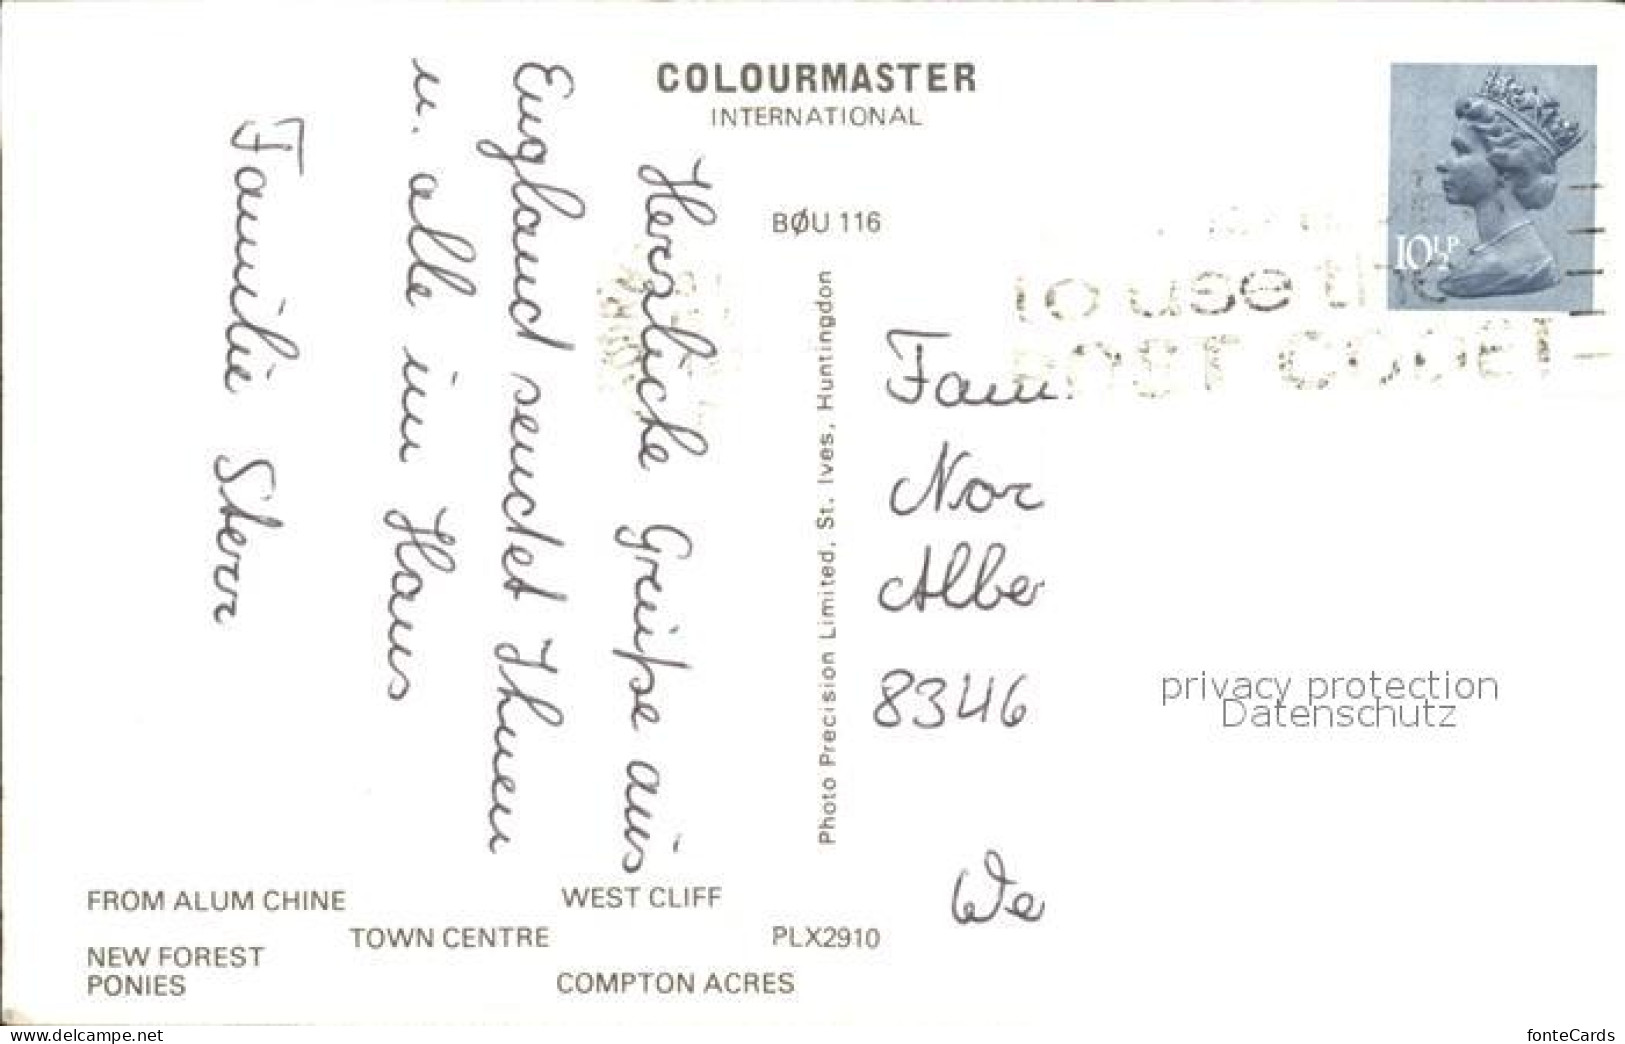 COLOURMASTER
INTERNATIONAL
BØU 116
Herzliche Grüße aus
England sendet Ihnen
u. alle im Haus
Familie
Photo Precision Limited, St. Ives, Huntingdon
10½P
to use the
POST CODE
Fam.
Nor
Albe
8346
We
privacy protection
Datenschutz
FROM ALUM CHINE
WEST CLIFF
TOWN CENTRE
PLX2910
NEW FOREST
PONIES
COMPTON ACRES
www.delcampe.net
fonteCards